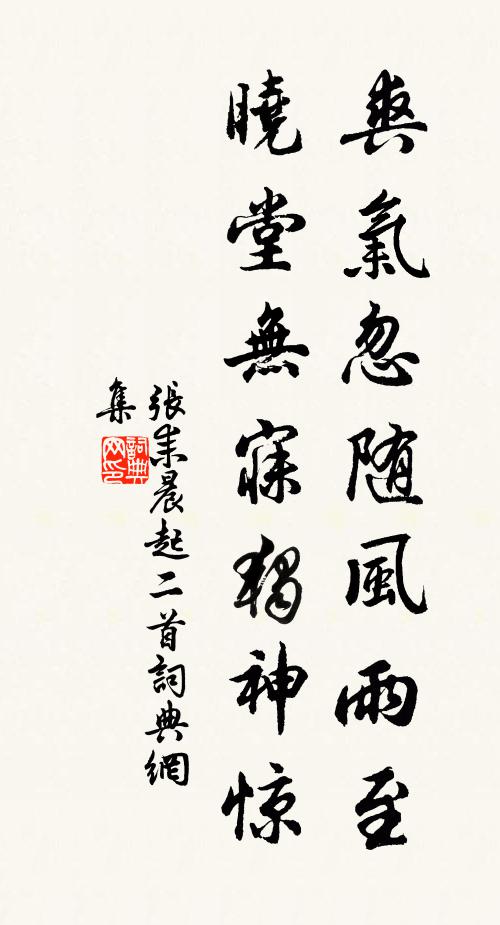 爽氣忽随風雨至
曉堂無寐獨神惊
張耒晨起二首詞典網
集
詞典网印